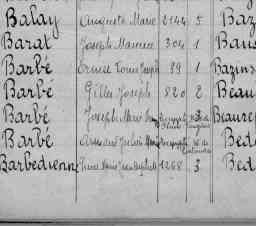 Balay Auguste Marie 2144 5 Baz
Barat Joseph Maurice 304 1 Baus
Barbé Ernest Louis Joseph 99 1 Bazins
Barbé Gilles Joseph 820 2 Beau
Barbé Joseph Marie Beaurep
Barbé Armand Julien Bede
Barbedienne Jean Baptiste 1268 3 Bed